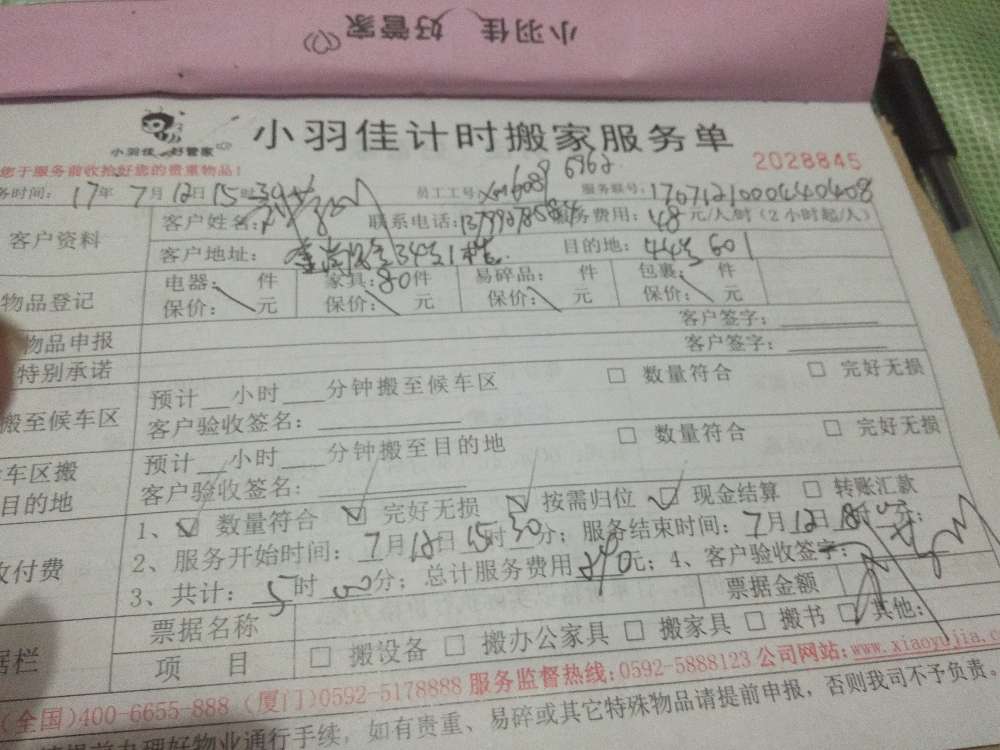 小羽佳 好管家
小羽佳 好管家
小羽佳计时搬家服务单
您于服务前收拾好您的贵重物品！
2028845
务时间：17年7月12日15时30 员工工号 服务联号：1707121000440408
客户资料
客户姓名： 联系电话： 服务费用：48元/人/时（2小时起/人）
客户地址： 目的地：445 601
物品登记
电器： 件 家具：80件 易碎品： 件 包裹： 件
保价： 元 保价： 元 保价： 元 保价： 元
物品申报 客户签字：
特别承诺 客户签字：
搬至候车区
预计 小时 分钟搬至候车区 □ 数量符合 □ 完好无损
客户验收签名：
车区搬
目的地
预计 小时 分钟搬至目的地 □ 数量符合 □ 完好无损
客户验收签名：
收付费
1、☑ 数量符合 ☑ 完好无损 ☑ 按需归位 ☑ 现金结算 □ 转账汇款
2、服务开始时间：7月12日15时30分；服务结束时间：7月12日18时 分；
3、共计：5时00分；总计服务费用240元；4、客户验收签字：
据栏
票据名称 票据金额
项 目 □ 搬设备 □ 搬办公家具 □ 搬家具 □ 搬书 □ 其他：
（全国）400-6655-888（厦门）0592-5178888 服务监督热线：0592-5888123 公司网站：www.xiaoyujia.c
请提前办理好物业通行手续，如有贵重、易碎或其它特殊物品请提前申报，否则我司不予负责。